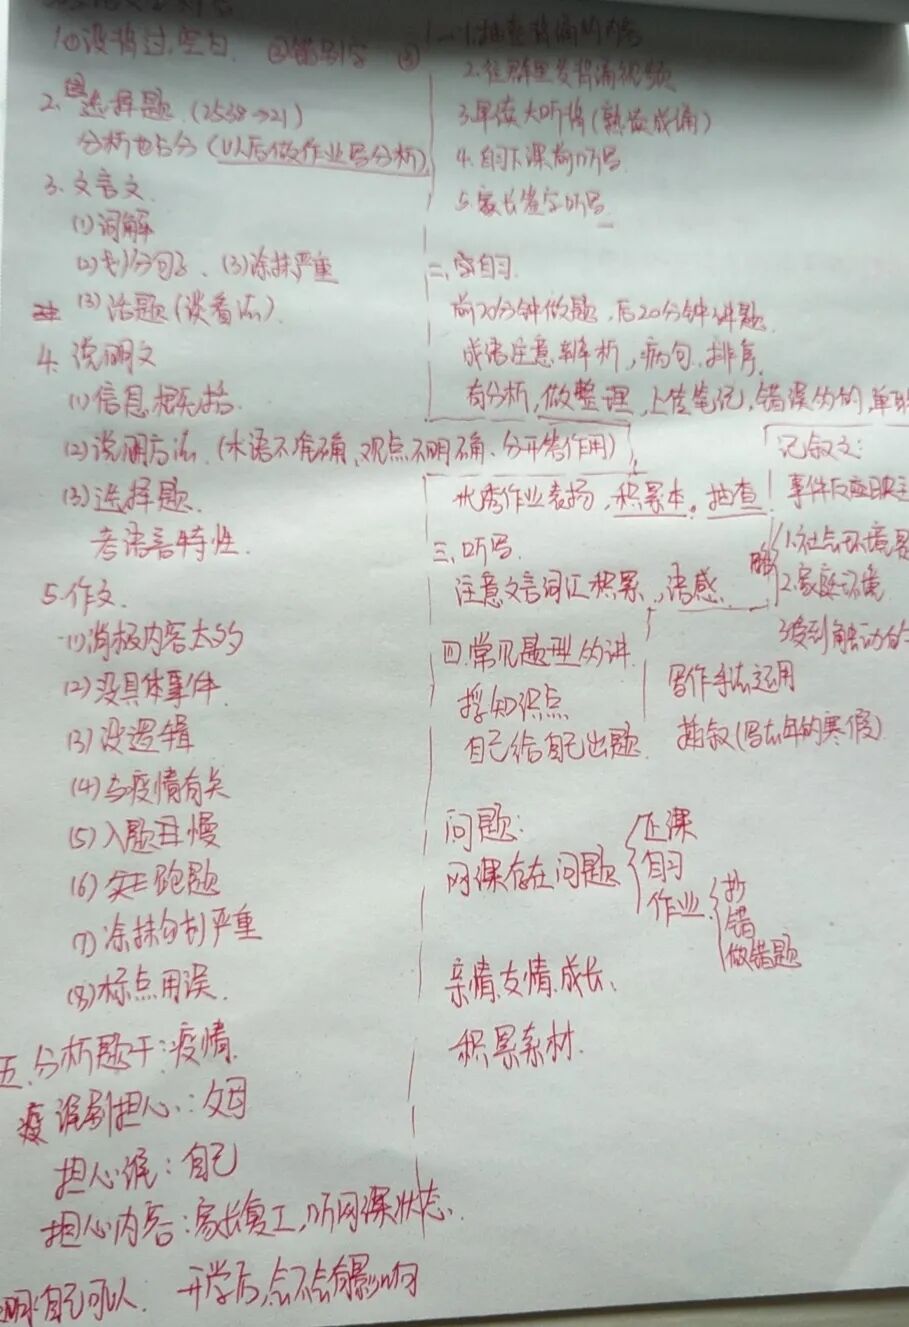 1.①没背过,空白. ②错别字 ③
2.选择题.(2538→21)
分析也占分(以后做作业写分析)
3.文言文.
(1)词解
(2)划分句子、(3)涂抹严重
(3)话题(谈看法).
4.说明文
(1)信息概括.
(2)说明方法.(术语不准确,观点不明确、分开答作用)
(3)选择题.
考语言特性.
5.作文.
(1)消极内容太多
(2)没具体事件.
(3)没逻辑
(4)与疫情有关
(5)入题且慢
(6)跑题
(7)涂抹勾划严重
(8)标点用误.
五.分析题干:疫情.
疫 谁担心:父母
担心谁:自己
担心内容:家长复工,听网课状态.
自己可以. 开学后,会不会有影响
一.1.抽查背诵的内容
2.往群里发背诵视频
3.早读大听背(熟读成诵)
4.自习下课前听写
5.家长签字听写
二、自习.
前20分钟做题,后20分钟讲题.
成语注意辨析,病句.排序.
有分析,做整理,上传笔记,错误多的,单
优秀作业表扬,积累本。抽查
三.听写.
注意文言词汇积累.,语感.
四.常见题型的讲.
授知识点
自己给自己出题.
记叙文:
事件反应
1.社会环境
2.家庭环境
3.受到触动的
写作手法运用
插叙(写去年的寒假)
问题:
网课存在问题
正课
自习
作业
抄
错
做错题
亲情,友情.成长.
积累素材.